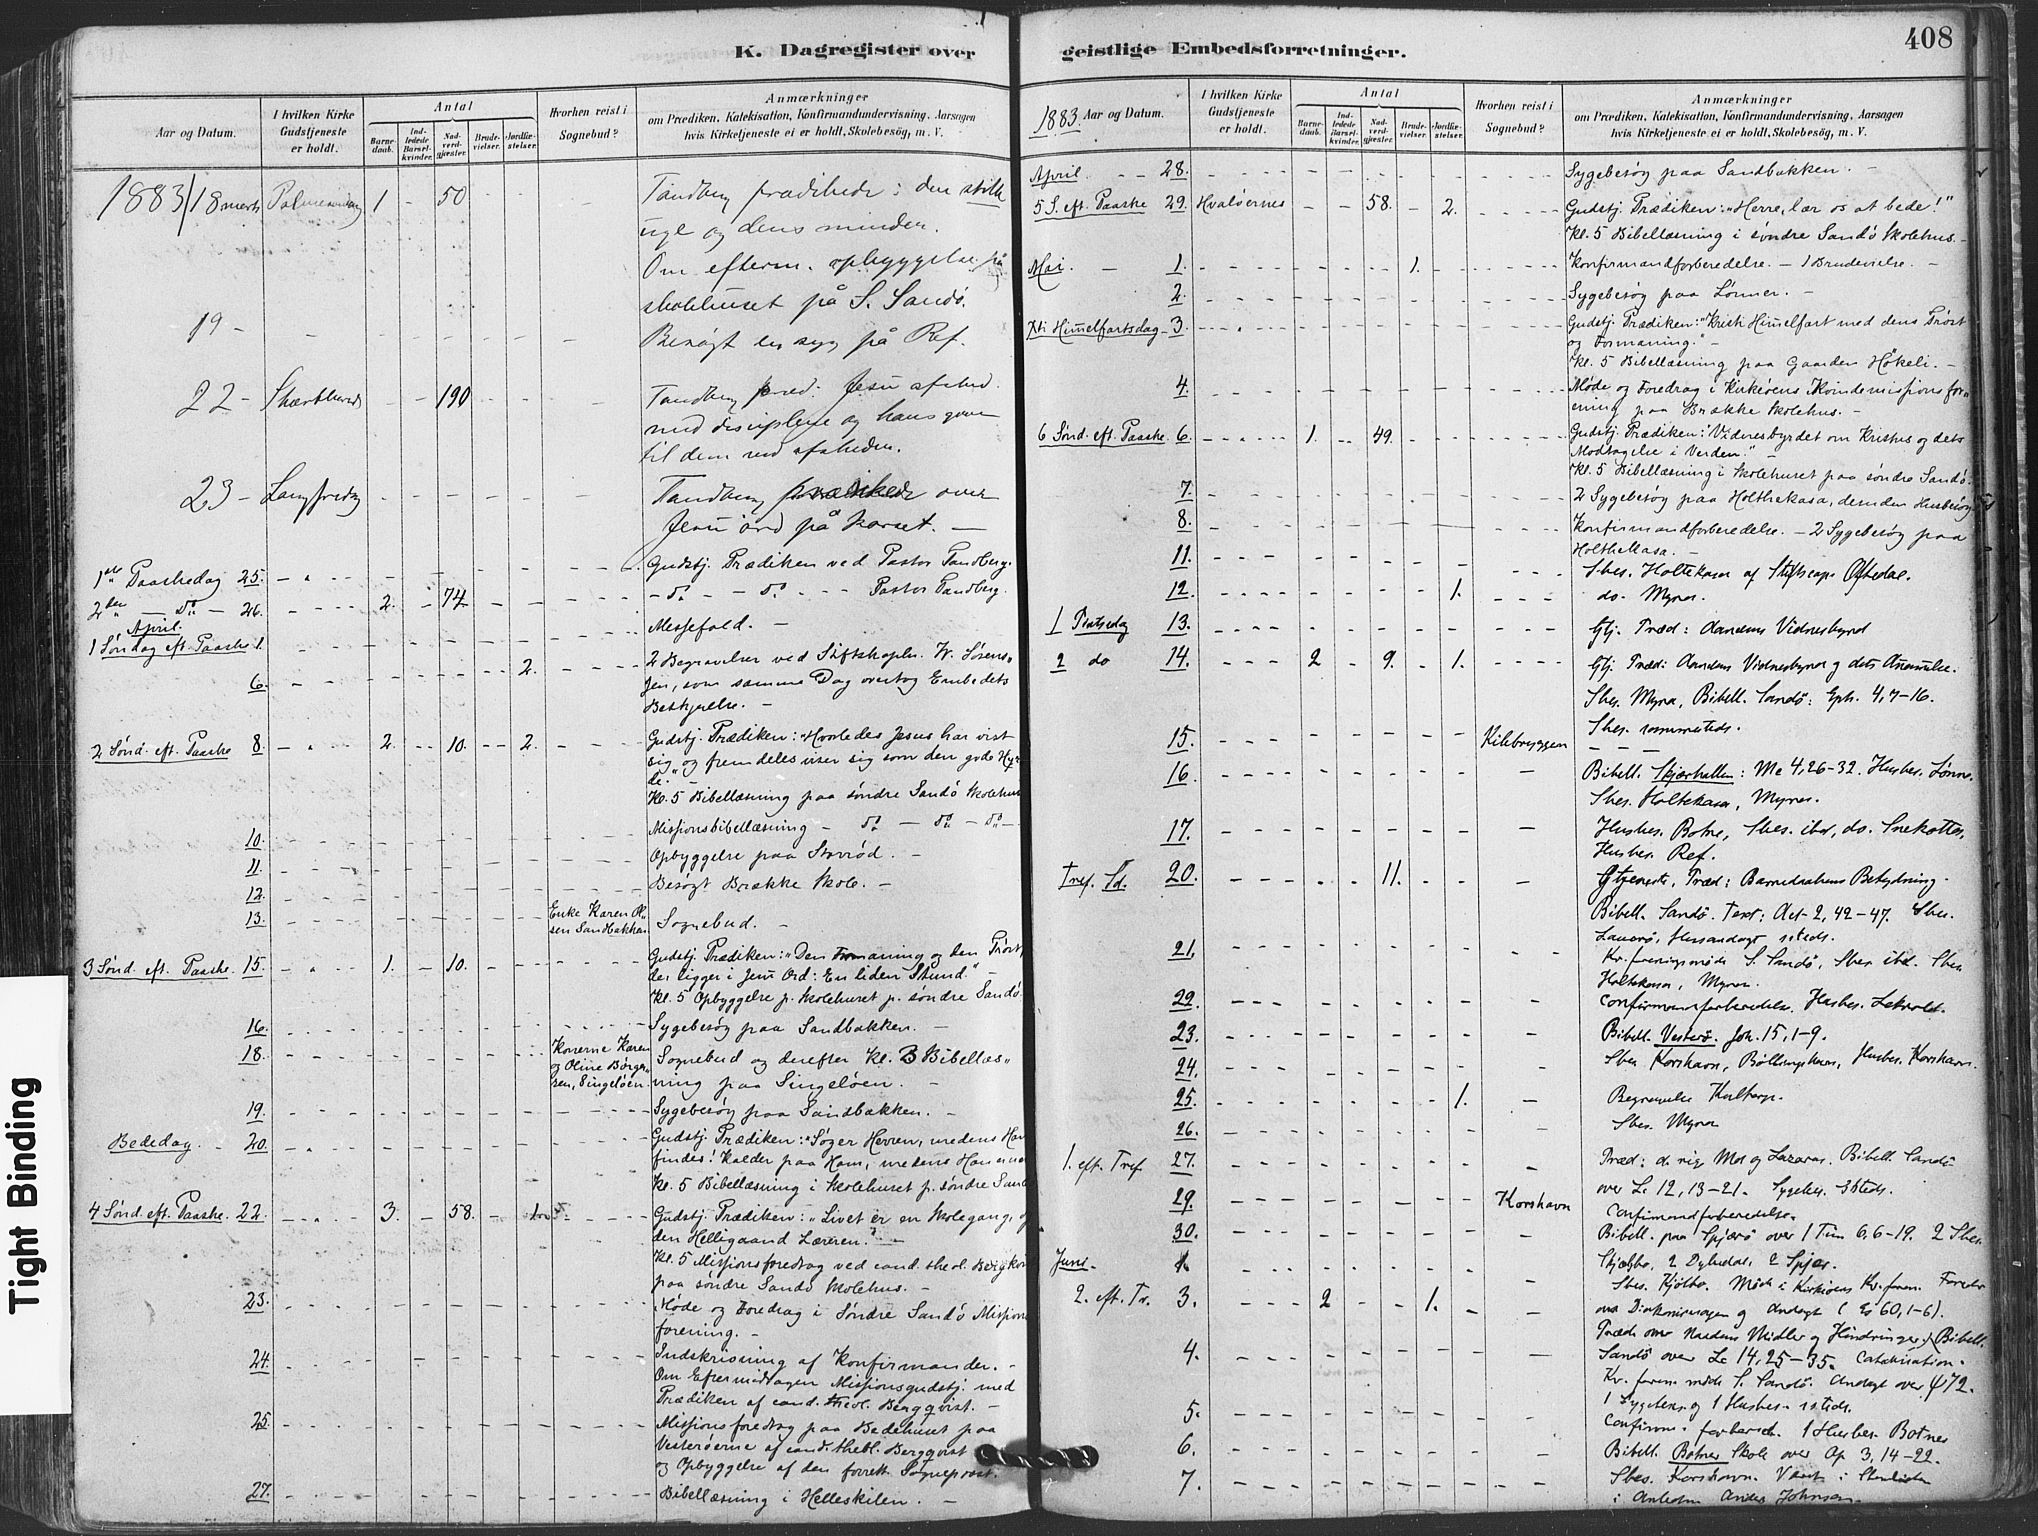 K. Dagregister over
Aar og Datum.
I hvilken Kirke Gudstjeneste er holdt.
Antal
Barnedaab.
Indledede Barselkvinder.
Nadverdgjæster.
Brudevielser.
Jordfæstelser.
Hvorhen reist i Sognebud?
Anmærkninger
om Prædiken, Katekisation, Konfirmandundervisning, Aarsagen
hvis Kirketjeneste ei er holdt, Skolebesøg, m. V.
1883/18 marts Palmesøndag 1 - 50 Tandberg prædikede: den stille
uge og dens minden.
Om efterm. opbyggelse på
skolehuset på S. Sandø.
19 - Besøgt en syg på Ref.
22 - Skærthorsd 190 Tandberg præd. Jesu afsked
med disciplene og hans gave
til dem ved afskeden.
23 - Langfredag Tandberg prædikede over
Jesu ord på korset. -
1ste Paaskedag 25. Gudstj. Prædiken ved Pastor Tandberg.
2den - do - 26. 2. - 74. - do - - do - - - Pastor Tandberg.
April.
1 Søndag eft. Paaske 1. Messefald. -
6. 2. 2 Begravelser ved Stiftskapln. W. Sørens-
sen, som samme Dag overtog Embedets
Bestyrelse. -
2 Sønd. eft. Paaske 8. 2. 10. 2. Gudstj. Prædiken: "Hvorledes Jesus har vist
sig og fremdeles viser sig som den gode Hyr-
de." -
Kl. 5 Bibellæsning paa søndre Sandø Skolehus
10. Missionsbibellæsning - do - do - do -
11. Opbyggelse paa Stovrød. -
12. Besøgt Brække Skole. -
13. Enke Karen Ol- Sognebud. -
sen Sandbakken
3 Sønd. eft. Paaske. 15. 1. 10. Gudstj. Prædiken: "Den Formaning og den Trøst,
der ligger i Jesu Ord: En liden Stund" -
Kl. 5 Opbyggelse p. Skolehuset p. søndre Sandø
16. Sygebesøg paa Sandbakken. -
18. Konerne Karen Sognebud og derefter Kl. 3 Bibellæs-
og Oline Børge- ning paa Singeløen. -
sen, Singeløen.
19. Sygebesøg paa Sandbakken. -
Bededag. 20. Gudstj. Prædiken: "Søger Herren, medens Han
findes! Kalder paa Ham, medens Han er nær
Kl. 5 Bibellæsning i Skolehuset p. søndre Sand
4 Sønd. eft. Paaske. 22. 3. 58. 1. Gudstj. Prædiken: "Livet er en Skolegang, og
den Helligaand Læreren." -
Kl. 5 Missionsforedrag ved cand. theol. Bergkvi
paa søndre Sandø Skolehus. -
23. Møde og Foredrag i Søndre Sandø Missions
forening. -
24. Indskrivning af Konfirmander. -
Om Eftermiddagen Missionsgudstj. med
Prædiken af cand. theol. Bergqvist. -
25. Missionsforedrag paa Bedehuset paa
Vesterøerne af cand. theol. Bergqvist
og Opbyggelse af den forrett. Sogneprest.
27. Bibellæsning i Helleskilen. -
geistlige Embedsforretninger.
408
1883 Aar og Datum.
I hvilken Kirke Gudstjeneste er holdt.
Antal
Barnedaab.
Indledede Barselkvinder.
Nadverdgjæster.
Brudevielser.
Jordfæstelser.
Hvorhen reist i Sognebud?
Anmærkninger
om Prædiken, Katekisation, Konfirmandundervisning, Aarsagen
hvis Kirketjeneste ei er holdt, Skolebesøg, m. V.
April. - - 28. Sygebesøg paa Sandbakken. -
5 S. eft. Paaske 29. Hvaløernes 58. 2. Gudstj. Prædiken: "Herre, lær os at bede!"
Kl. 5 Bibellæsning i søndre Sandø Skolehus. -
Mai. - 1. 1. Konfirmandforberedelse. - 1 Brudevielse. -
2. Sygebesøg paa Lønner. -
Xti Himmelfartsdag - 3. Gudstj. Prædiken: "Kristi Himmelfart med dens Trøst
og Formaning." -
Kl. 5 Bibellæsning paa Gaarden Høkeli. -
4. Møde og Foredrag i Kirkøens Kvindemissionsfor-
ening paa Brække Skolehus. -
6 Sønd. eft. Paaske 6. 1. 49. Gudstj. Prædiken: "Vidnesbyrdet om Kristus og dets
Modtagelse i Verden." -
Kl. 5 Bibellæsning i Skolehuset paa søndre Sandø.
7. 2 Sygebesøg paa Holthekasa, desuden Husbesøg
8. Konfirmandforberedelse. - 2 Sygebesøg paa
Holthekasa. -
11. Sbes. Holtekasa af Stiftscap. Oftedal.
12. 1. do. Myrer.
1 Pintsedag 13. Gtj. Præd: Aandens Vidnesbyrd
2 do 14. 2 9. 1. Gtj. Præd: Aandens Vidnesbyrd og dets
Sbes. Myra, Bibell. Sandø: Eph. 4,7-16.
15. Kilebryggen Sbes. sammesteds.
16. Bibell. Skjærhallen: Mc 4,26-32. Husbes. Lønne.
Sbes. Holtekasa, Myrer.
17. Husbes. Botne, Sbes. ibd, do. Snekotter,
Husbes. Ref.
Tref. Sd. 20. 11. Gtjeneste, Præd: Barnedaabens Betydning.
Bibell. Sandø. Text: Act. 2, 42-47. Sbes.
21. Kv. foreningsmøde S. Sandø, Sbes ibd. Sbes
Holtekasa, Myrer.
22. Confirmandforberedelse. Husbes.
23. Bibell. Vesterø. Joh. 15, 1-9.
24. Sbes Korshavn, Bøllingshavn, Husbes. Korshavn.
25. 1. Begravelse
26. Sbes. Myrer
1. eft. Tref 27. Præd: d. rige Md og Lazarus. Bibell. Sandø
over Lc 12, 13-21. Sygebes. 3steds.
29. Korshavn Confirmandforberedelse.
30. Bibell. paa Spjærø over 1 Tim 6, 6-19. 2 Sbes.
2 Dybedal, 2 Spjær.
Juni. 1. Sbes. Kjølbo. Møde i Kirkøens Kv. foren. Foredr
om Diakonissesagen og Andagt (Es 60, 1-6).
2. eft. Tr. 3. 2 1. Præd: om Naadens Midler og Hindringer) Bibell.
Sandø over Lc 14, 25-35. Catakisation.
4. Kv. foren. møde S. Sandø. Andagt over ψ 72.
1 Sygebes. og 1 Husbes. isteds.
5. Confirm. forbered. 1 Husbes. Botnes
6. Bibell. Botnes Skole over Op 3, 14-22.
7. Sbes. Korshavn.
Anders Johnsen.
Tight Binding